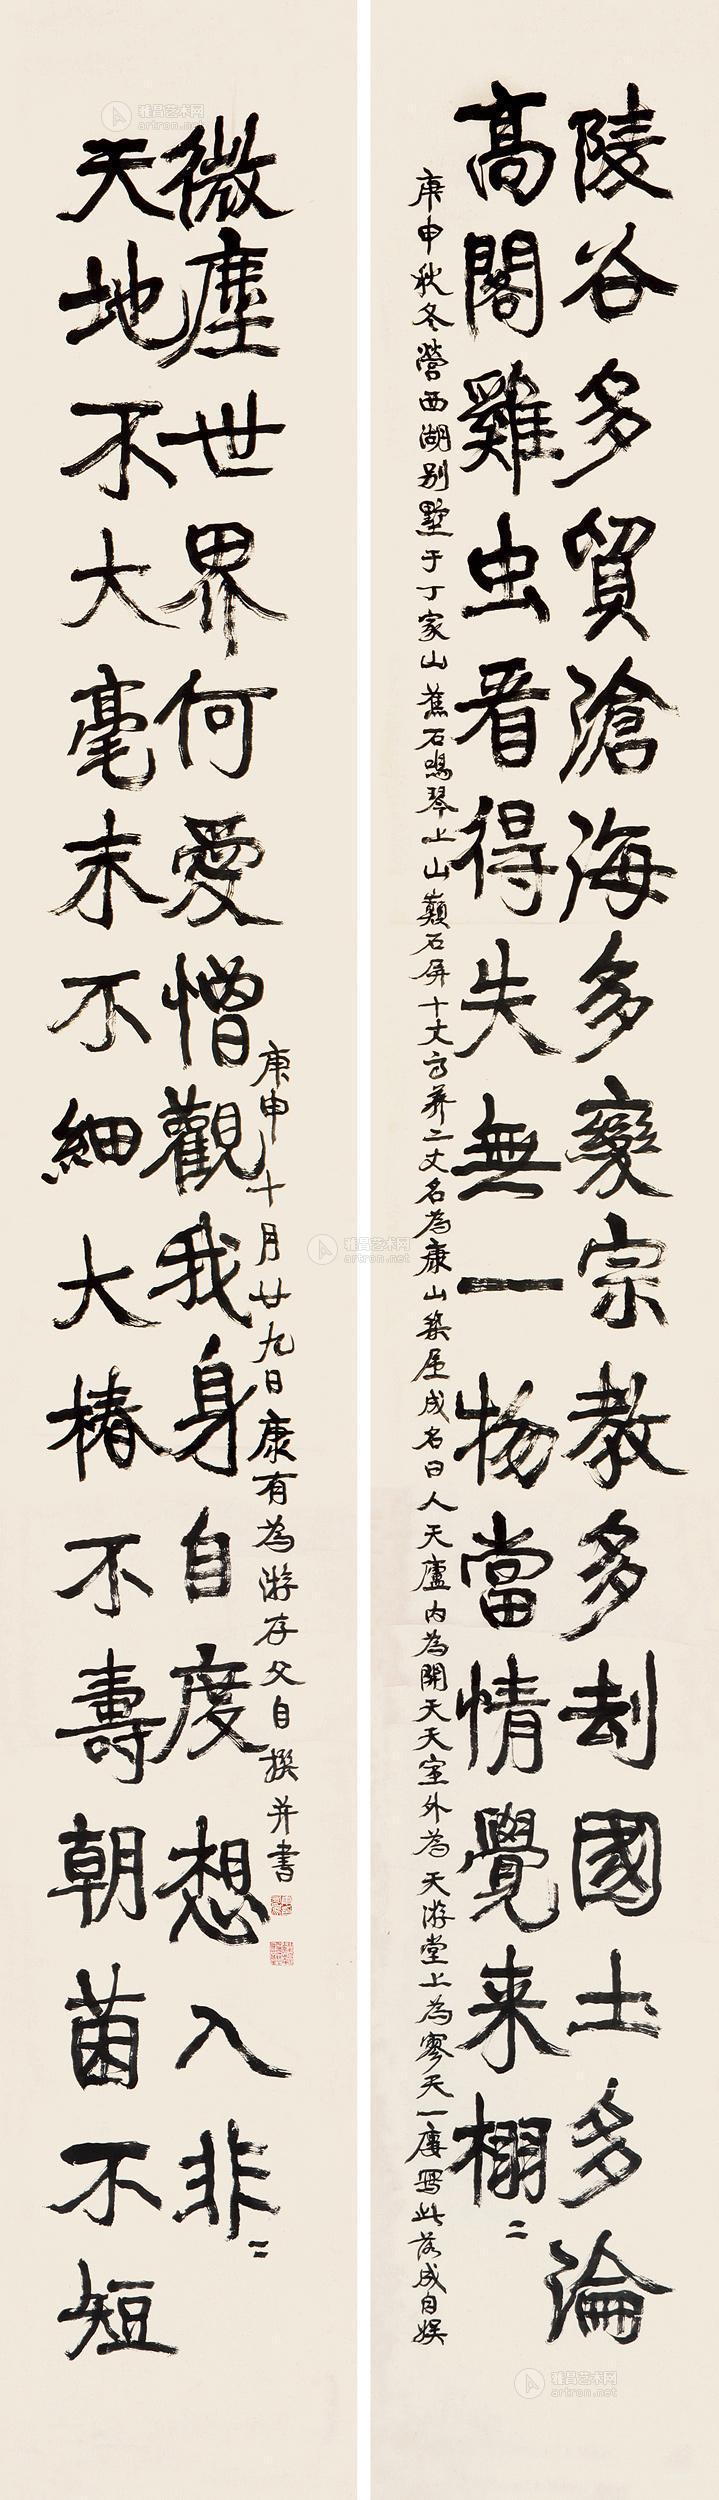 陵谷多貿滄海多變宗教多劫國土多淪
高閣雞虫看得失無一物當情覺来栩二
庚申秋冬營西湖別墅于丁家山蕉石鳴琴上山巔石屏十丈二丈名為康山築屋成名曰人天廬内為開天天室外為天游堂上為寥天一廔寫此落成自娛
天地不大毫末不細大椿不壽朝菌不短
微塵世界何愛憎觀我身自度想入非二
庚申十月廿九日康有為游存父自撰并書
雅昌艺术网
artron.net
雅昌艺术网
artron.net
雅昌艺术网
artron.net